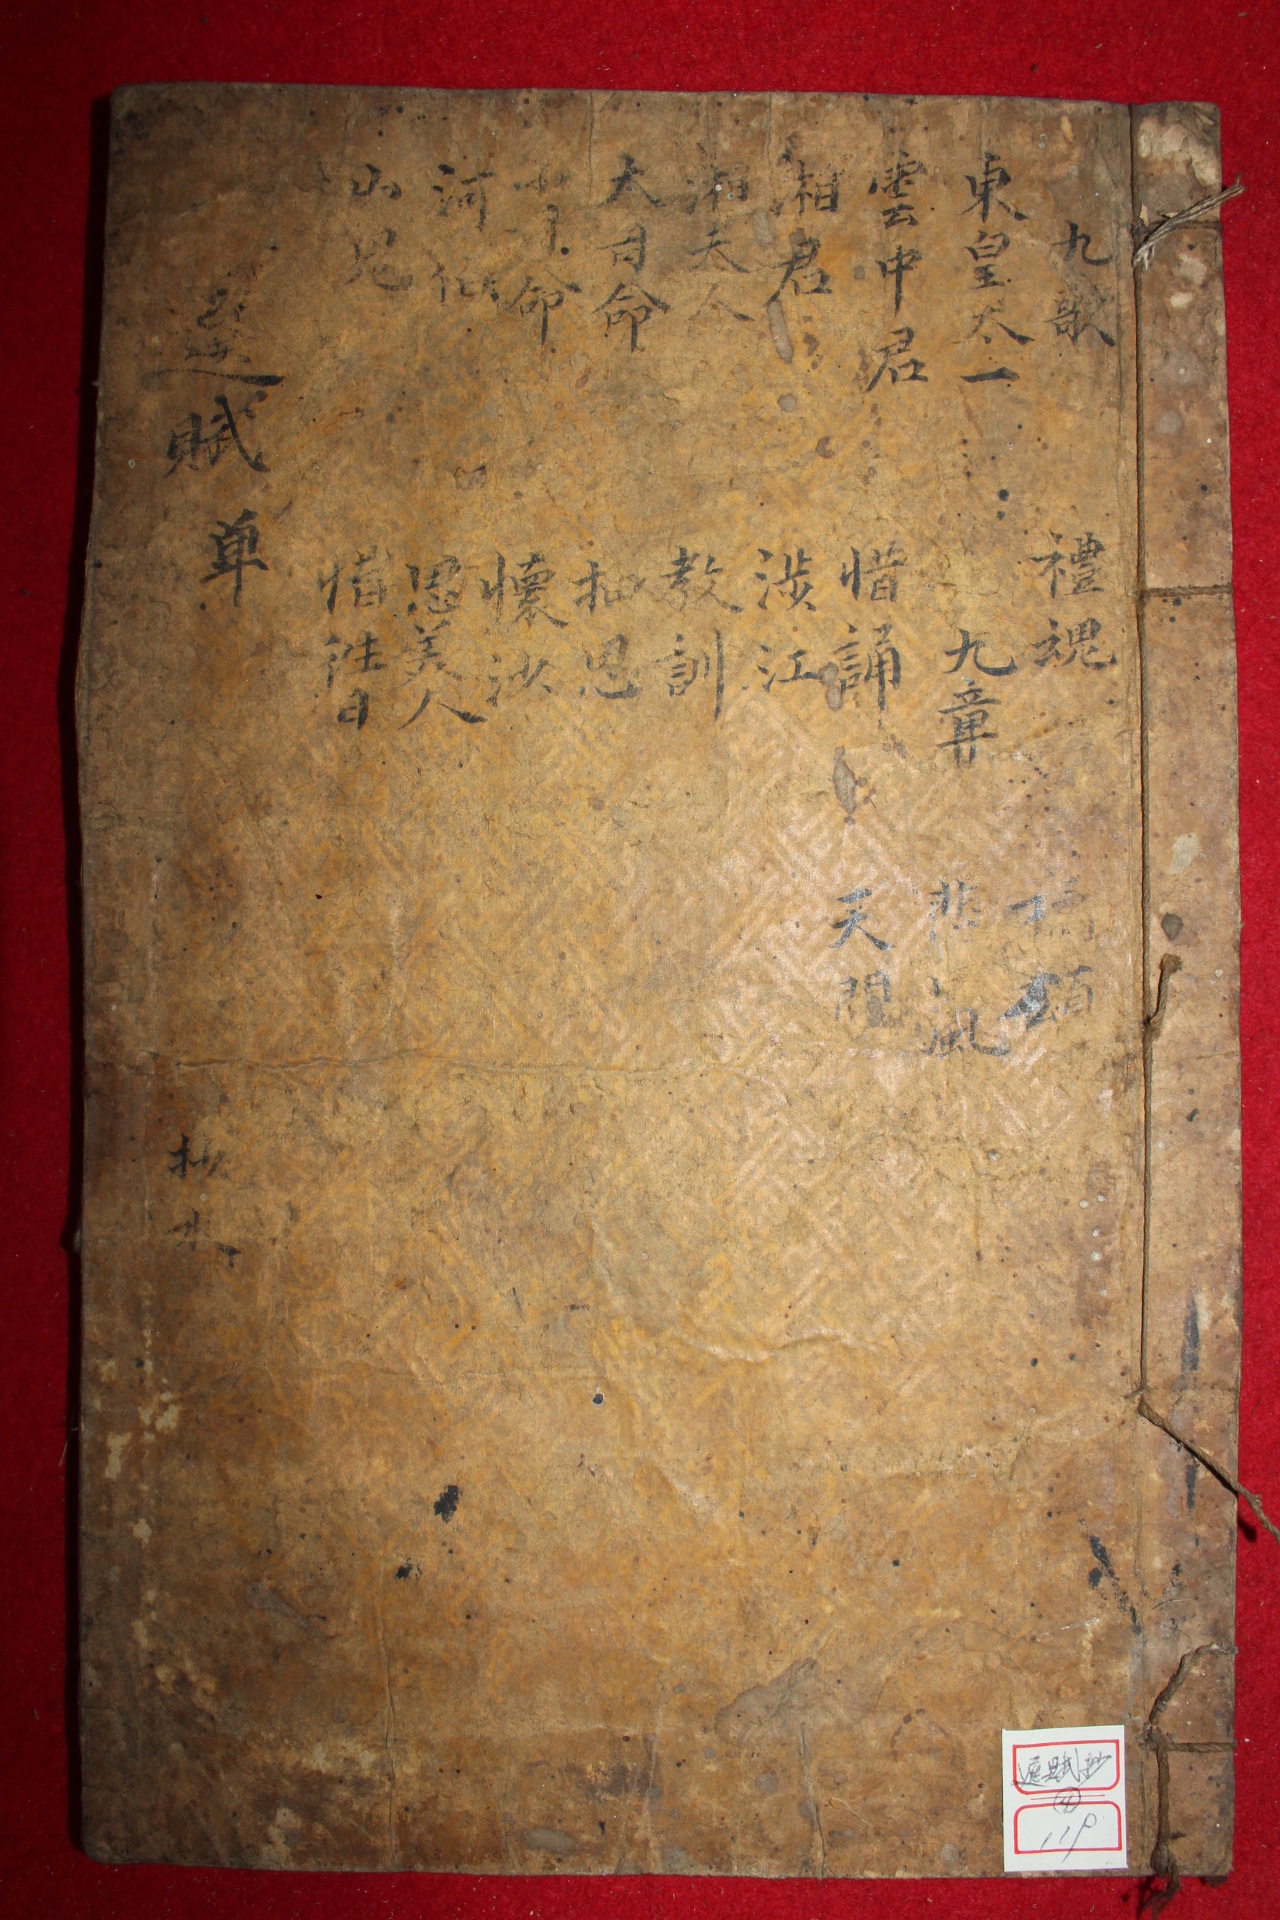 九歌
東皇太一
雲中君
湘君
湘夫人
大司命
少司命
河伯
山鬼
禮魂
九章
惜誦
涉江
教訓
抽思
懷沙
思美人
惜往日
橘頌
悲風
天問
選賦 単
抄
選賦抄
④
119